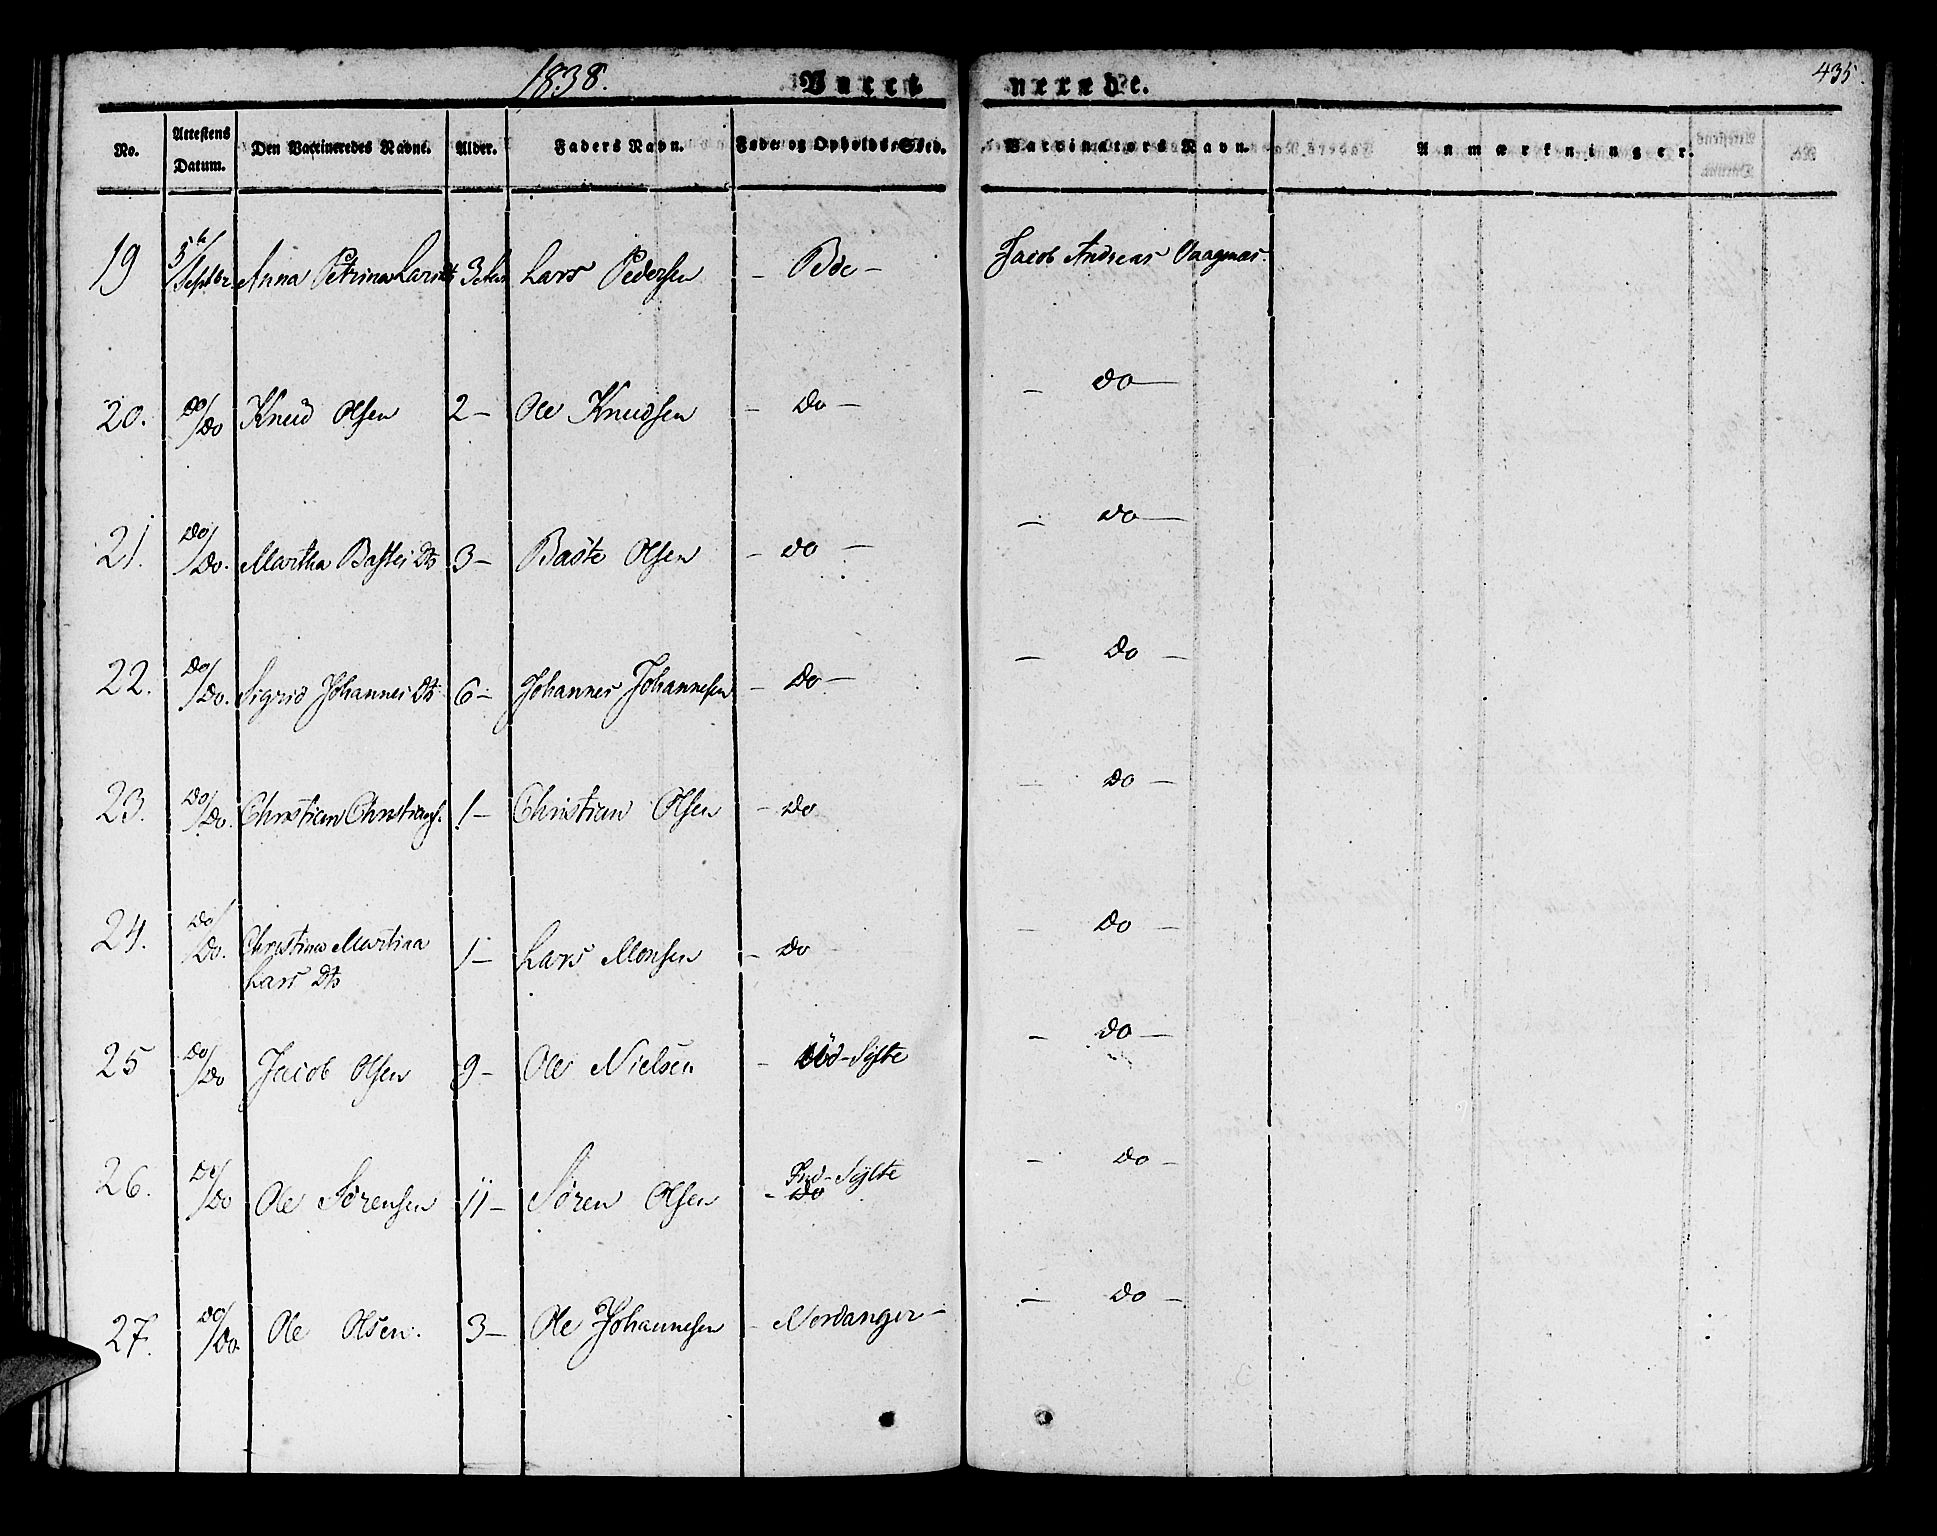 1838. Vacci nerede. 435.
No. Attestens Datum. Den Vaccineredes Navne. Alder. Faders Navn. Føde og Opholds-Sted. Vaccinatørs Navn. Anmærkninger.
19 5te/Septbr Anna Petrina Larsdt 3 Lars Pedersen – Bøe – Jacob Andreas
20. Do/Do Knud Olsen 2 – Ole Knudsen – Do – – Do –
21. Do/Do. Martha Bastes Dtr 3 – Baste Olsen – Do – – Do –
22. Do/Do. Sigrid Johannes Dtr 6 – Johannes Johannesen – Do – – Do –
23. Do/Do. Christian Christians. 1 – Christian Olsen – Do – Do –
24. Do/Do. Christina Martina
Lars Dtr 1 – Lars Monsen – Do – Do –
25 Do/Do Jacob Olsen 9 – Ole Nielsen – -Sylte – Do –
26. Do/Do Ole Sørensen 11 – Søren Olsen – Ind-Sylte
Do – Do –
27. Do/Do. Ole Olsen. 3 – Ole Johannesen – Nordanger – – Do –